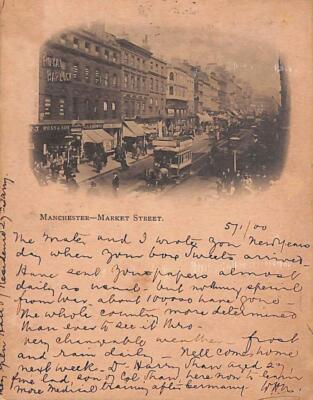 ROYAL
J. ROSS & SON
MANCHESTER—MARKET STREET.
5/1/00
The Mater and I wrote you New Years
day when your box sweets arrived
Anne send you papers almost
daily as usual - but nothing special
from war - about 100000 have gone -
The whole country more determined
than ever to see it thro -
very changeable weather - frost
and rain daily - Nell comes home
next week - Dr Harry Shaw aged 28
fine lad, son of Col Shaw here now to learn
more medical training after Germany